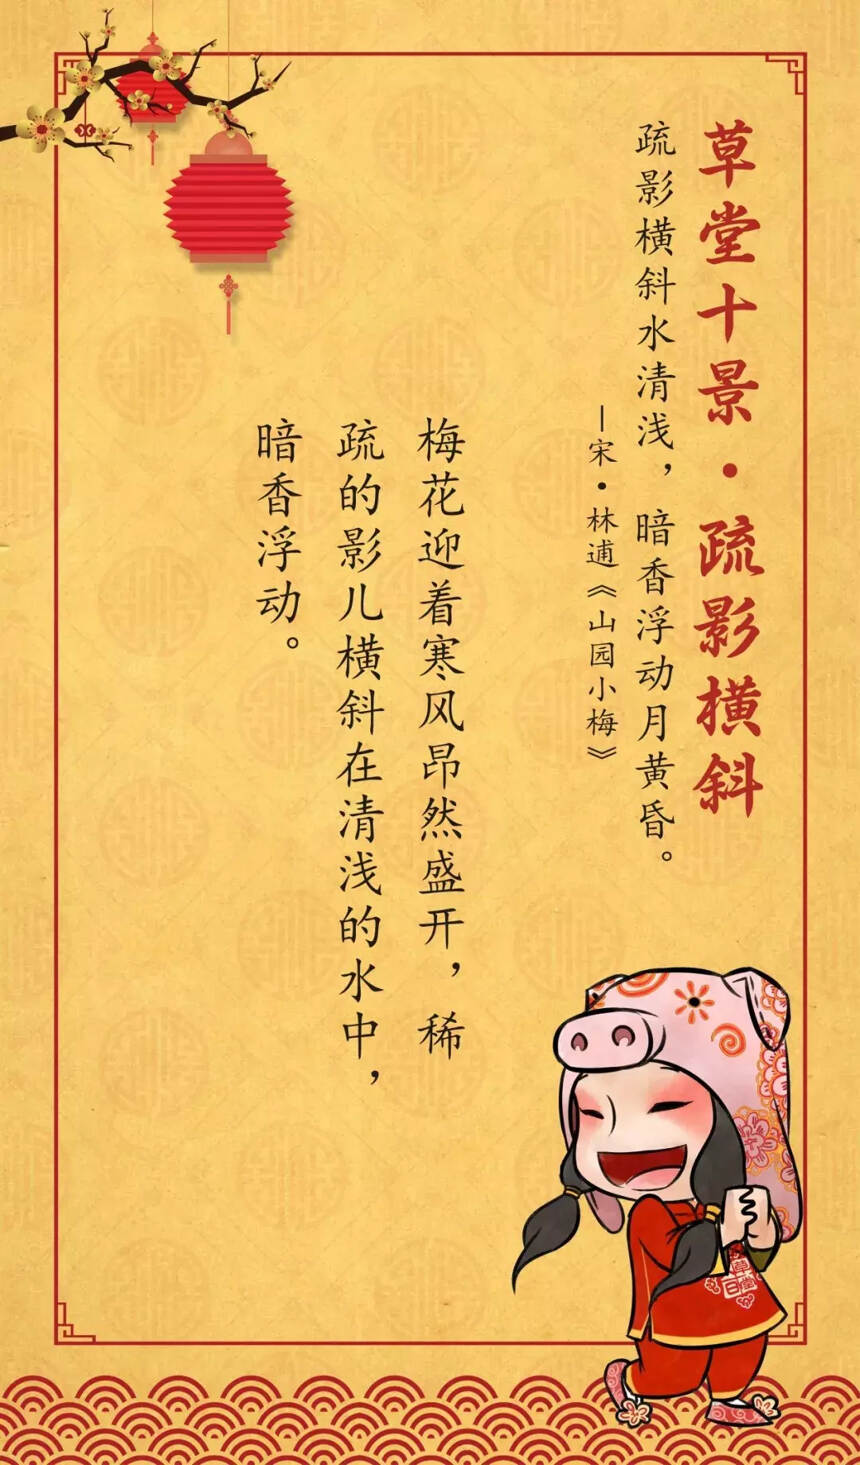 草堂十景·疏影横斜
疏影横斜水清浅，暗香浮动月黄昏。
—宋·林逋《山园小梅》
梅花迎着寒风昂然盛开，稀
疏的影儿横斜在清浅的水中，
暗香浮动。